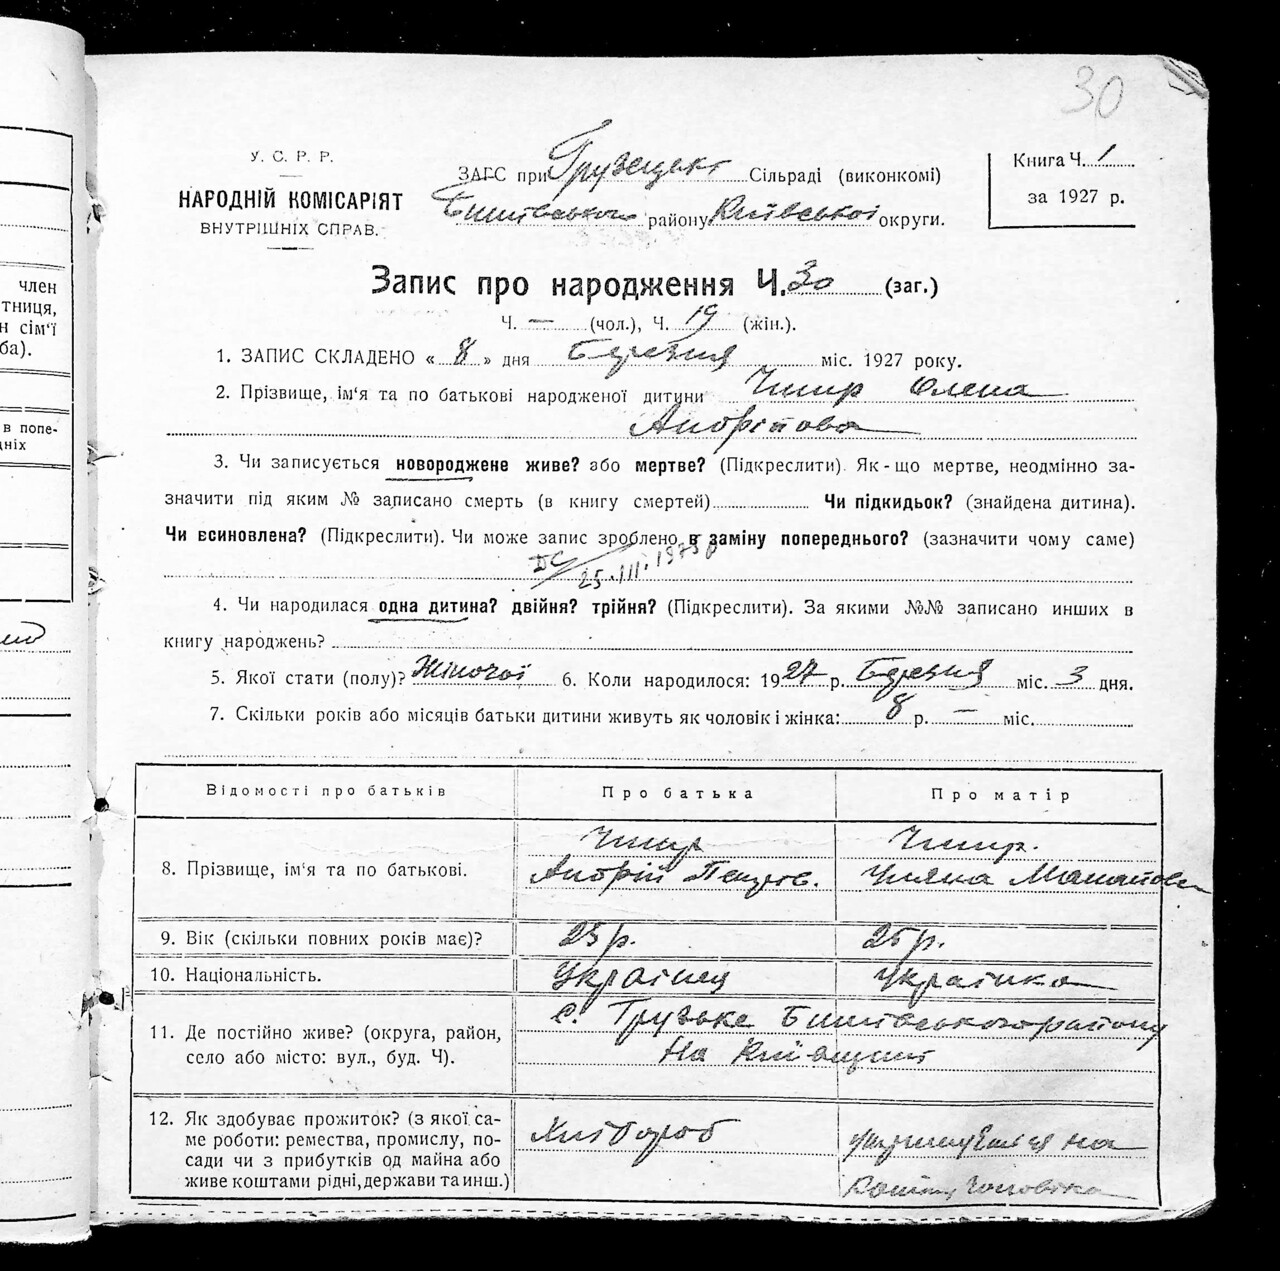 30
У. С. Р. Р.
НАРОДНІЙ КОМІСАРІЯТ
ВНУТРІШНІХ СПРАВ.
ЗАГС при Грузецькі Сільраді (виконкомі)
Бишівського району Київської округи.
Книга Ч. 1
за 1927 р.
Запис про народження Ч. 30 (заг.)
Ч. — (чол.), Ч. 19 (жін.).
1. ЗАПИС СКЛАДЕНО « 8 » дня Березня міс. 1927 року.
2. Прізвище, ім'я та по батькові народженої дитини Чмир Олена
Андріїова
3. Чи записується новороджене живе? або мертве? (Підкреслити). Як-що мертве, неодмінно за-
значити під яким № записано смерть (в книгу смертей) Чи підкидьок? (знайдена дитина).
Чи всиновлена? (Підкреслити). Чи може запис зроблено в заміну попереднього? (зазначити чому саме)
25.III.1975р
4. Чи народилася одна дитина? двійня? трійня? (Підкреслити). За якими №№ записано инших в
книгу народжень?
5. Якої стати (полу)? Жіночої 6. Коли народилося: 1927 р. Березня міс. 3 дня.
7. Скільки років або місяців батьки дитини живуть як чоловік і жінка: 8 р. — міс.
Відомості про батьків Про батька Про матір
8. Прізвище, ім'я та по батькові. Чмир Чмир.
Андрій Уляна
9. Вік (скільки повних років має)? 25 р.
10. Національність. Українец Українка
11. Де постійно живе? (округа, район,
село або місто: вул., буд. Ч).
с. Грузьке Бишівського району
На Київщині
12. Як здобуває прожиток? (з якої са-
ме роботи: ремества, промислу, по-
сади чи з прибутків од майна або
живе коштами рідні, держави та инш.)
Хлібороб
на
Кошти Чоловіка
член
тниця,
н сім'ї
ба).
в попе-
дніх